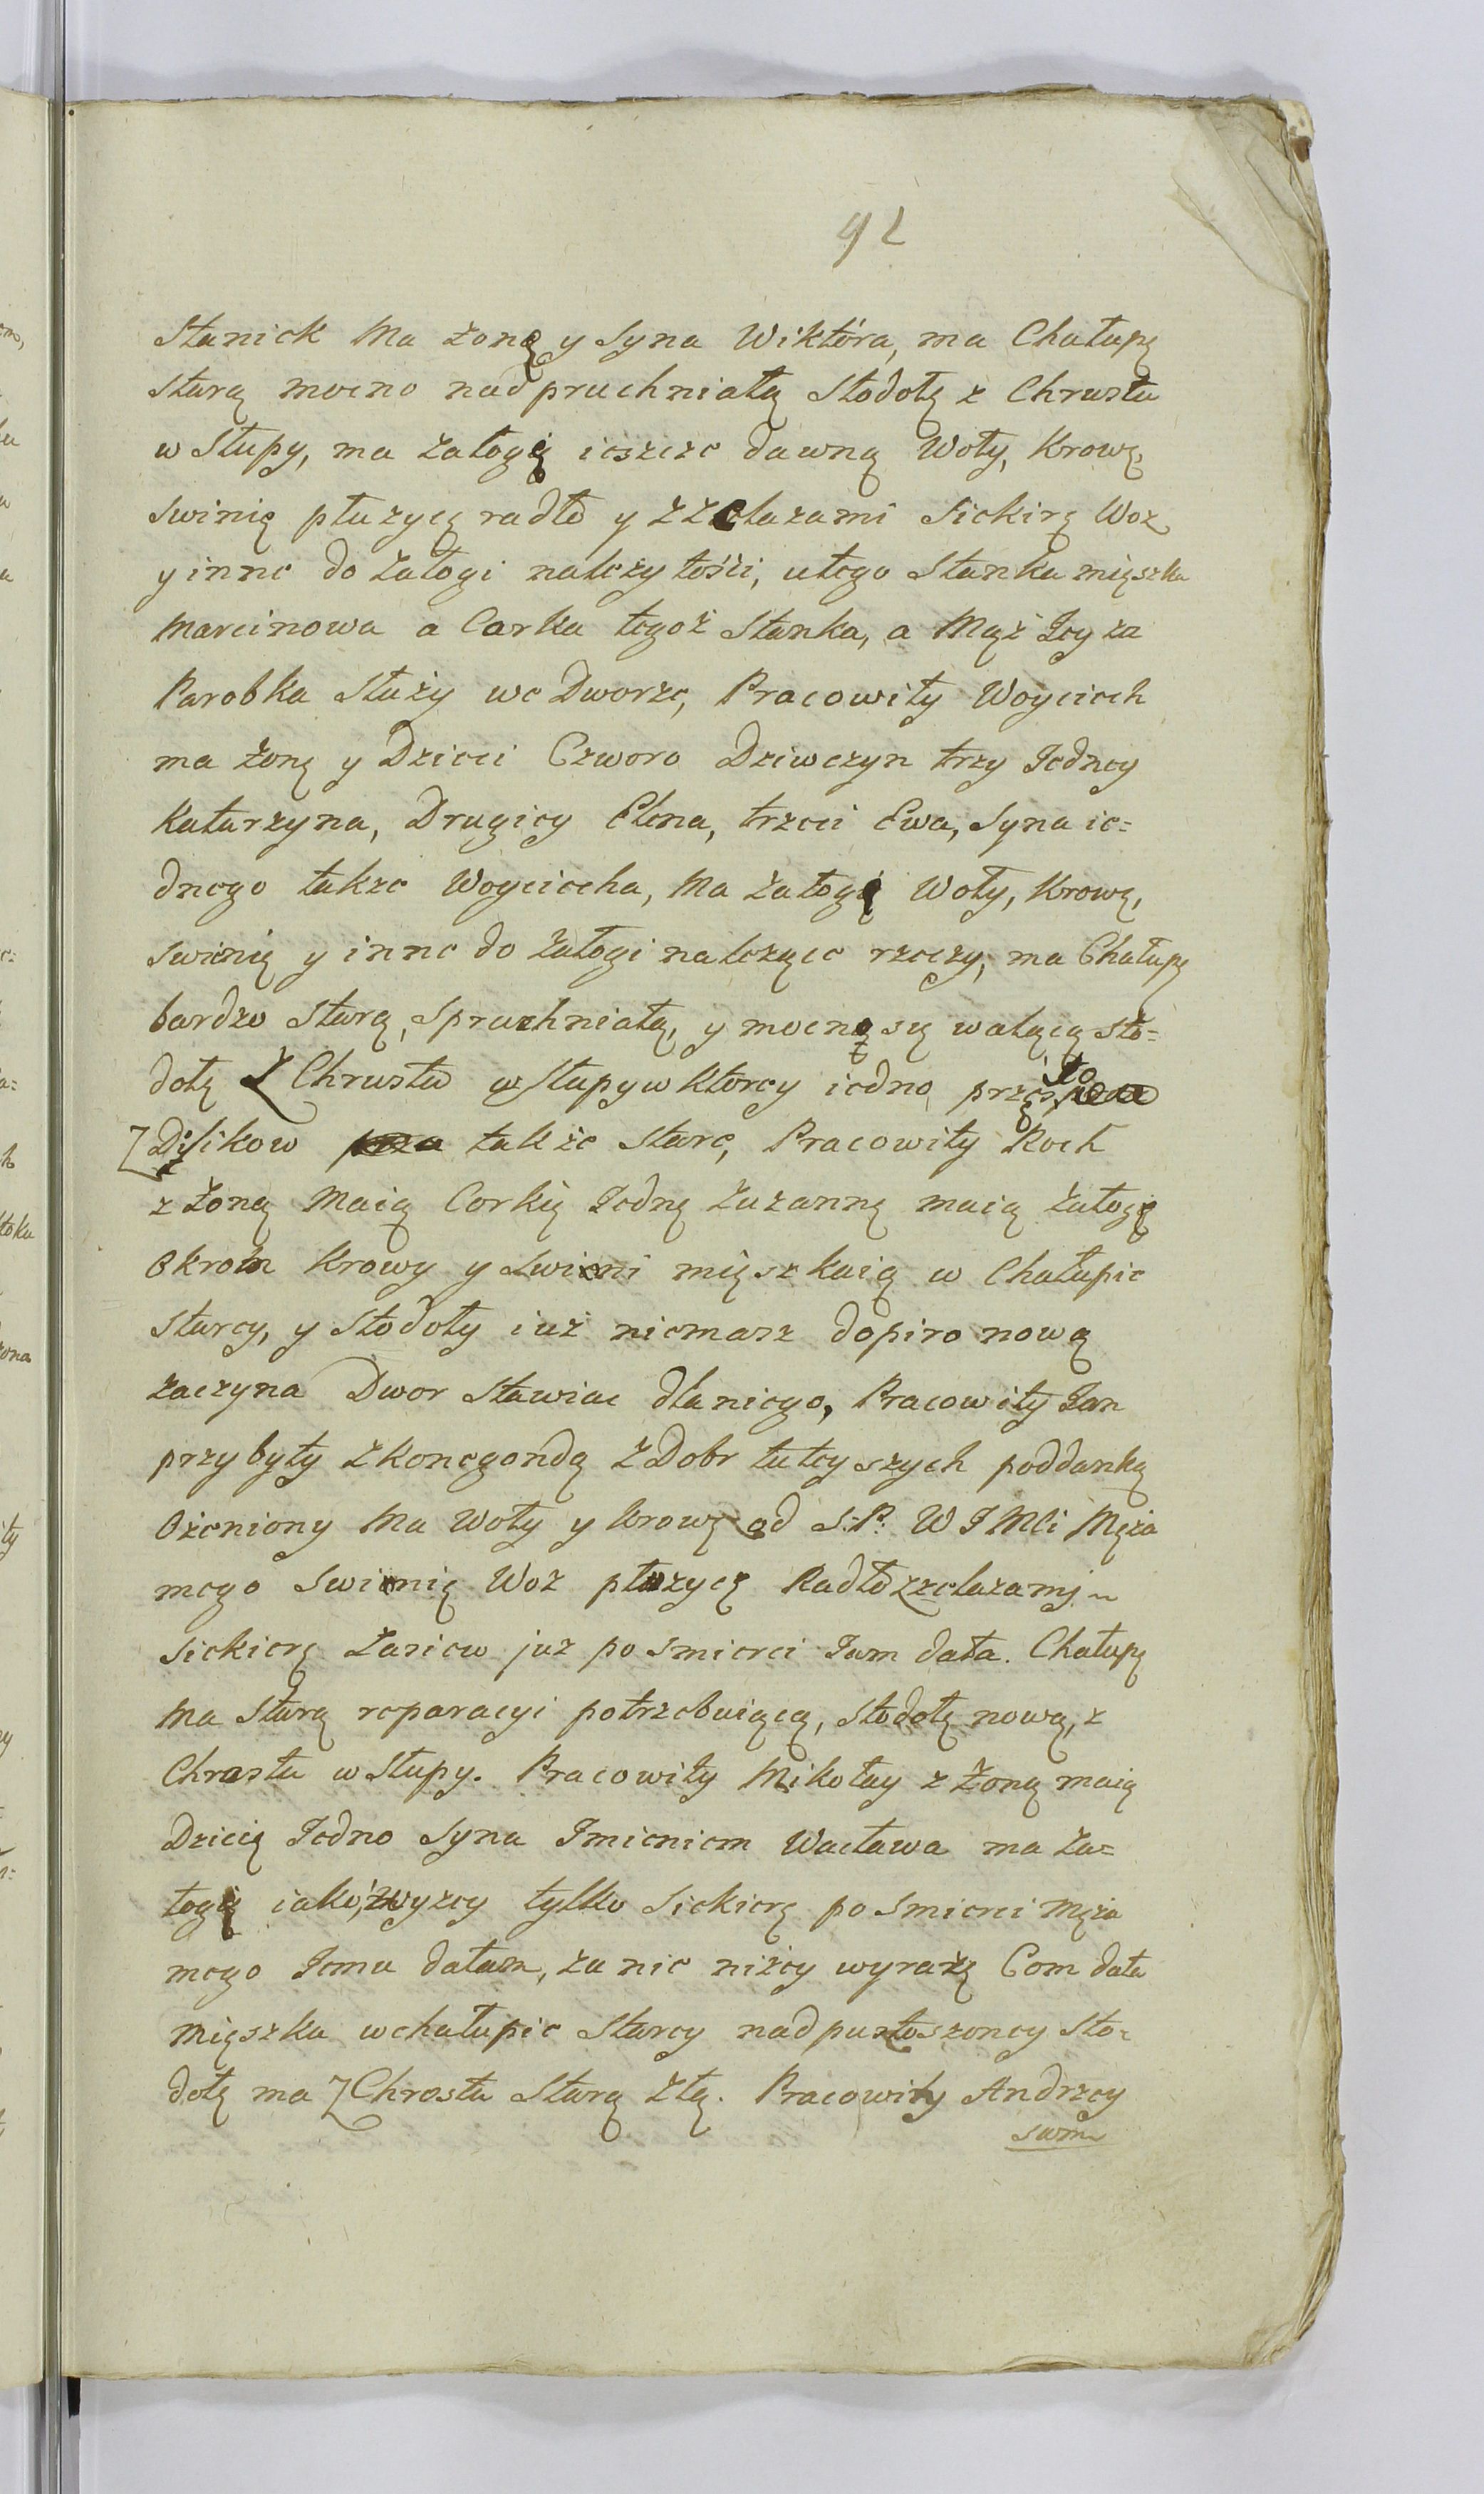 92
Staniek Ma żonę y Syna Wiktóra, ma Chałupę
starą mocno nadpruchniałą Stodołę z Chrustu
w Słupy, ma załogę ieszcze dawną Woły, Krowę,
Swinię płużycę radło y z Zelazami Siekirę Woz
y inne do załogi należytośći, utego Stanka mięszka
Marcinowa a Corka tegoż Stanka, a Mąż Jey za
Parobka służy we Dworze, Pracowity Woyciech
ma żonę y Dzieci Czworo Dziwczyn trzy Jedney
Katarzyna, Drugiey Elena, trzeci Ewa, Syna ie=
dnego takze Woyciecha, Ma załogę Woły, Krowę,
swinię y inne do załogi należące rzeczy, ma Chałupę
bardzo starą, spruchniałą, y mocno się walącą sto=
dołę Z Chrustu w słupy w ktorey iedno przęsło
Z Dylikow także stare, Pracowity Roch
z Żoną Maią Corkię Jednę Zuzannę maią załogę
Okrom Krowy y Swini mięszkaią w Chałupie
starey, y stodoły iuż niemasz dopiro nową
zaczyna Dwor stawiac dla niego, Pracowity Jan
przybyły z Konegondą z Dobr tuteyszych poddanką
Ożeniony Ma Woły y krowę od S.P. W J MCi Męża
mego Swinię Woz płużycę Radło z zelazamj
siekierę Łasicw juz po smierci Jam dała. Chałupę
Ma starą reparacyi potrzebuiącą, stodołę nową, z
Chrustu w Słupy. Pracowity Mikołay z Żoną maią
Dziecię Jedno Syna Jmieniem Wacława ma za=
łogę iako wyzey tylko siekierę po smierci Męża
mego Jemu dałam, za nie niżey wyrażę Com dała
mięszka w chałupie starey nadpustoszoney sto=
dołę ma Z Chrostu starą złą. Pracowity Andrzey
swm